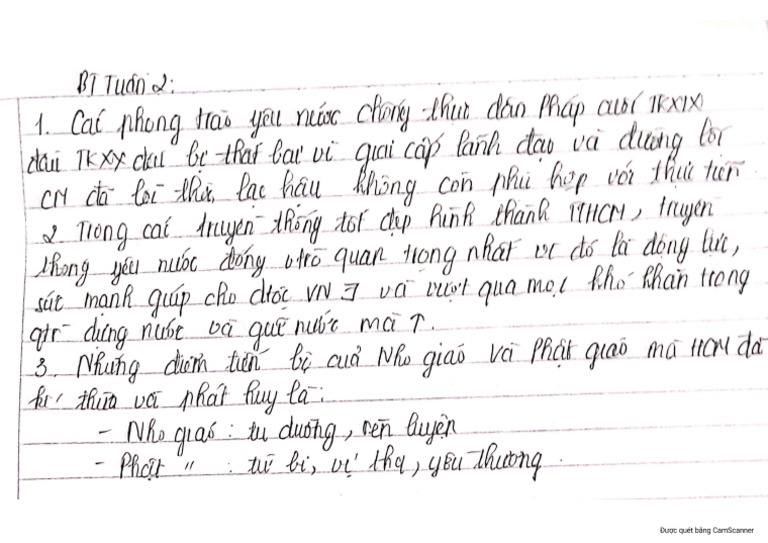 BT Tuần 2:
1. Các phong trào yêu nước chống thực dân Pháp cuối TK XIX
đầu TK XX đều bị thất bại vì giai cấp lãnh đạo và đường lối
CM đã lỗi thời, lạc hậu không còn phù hợp với thực tiễn
2. Trong các truyền thống tốt đẹp hình thành TTHCM, truyền
thống yêu nước đóng vtrò quan trọng nhất vì đó là động lực,
sức mạnh giúp cho dtộc VN ∃ và vượt qua mọi khó khăn trong
qtr dựng nước và giữ nước mà ↑.
3. Những điểm tiến bộ của Nho giáo và Phật giáo mà HCM đã
kế thừa và phát huy là:
- Nho giáo: tu dưỡng, rèn luyện
- Phật " : từ bi, vị tha, yêu thương.
Được quét bằng CamScanner